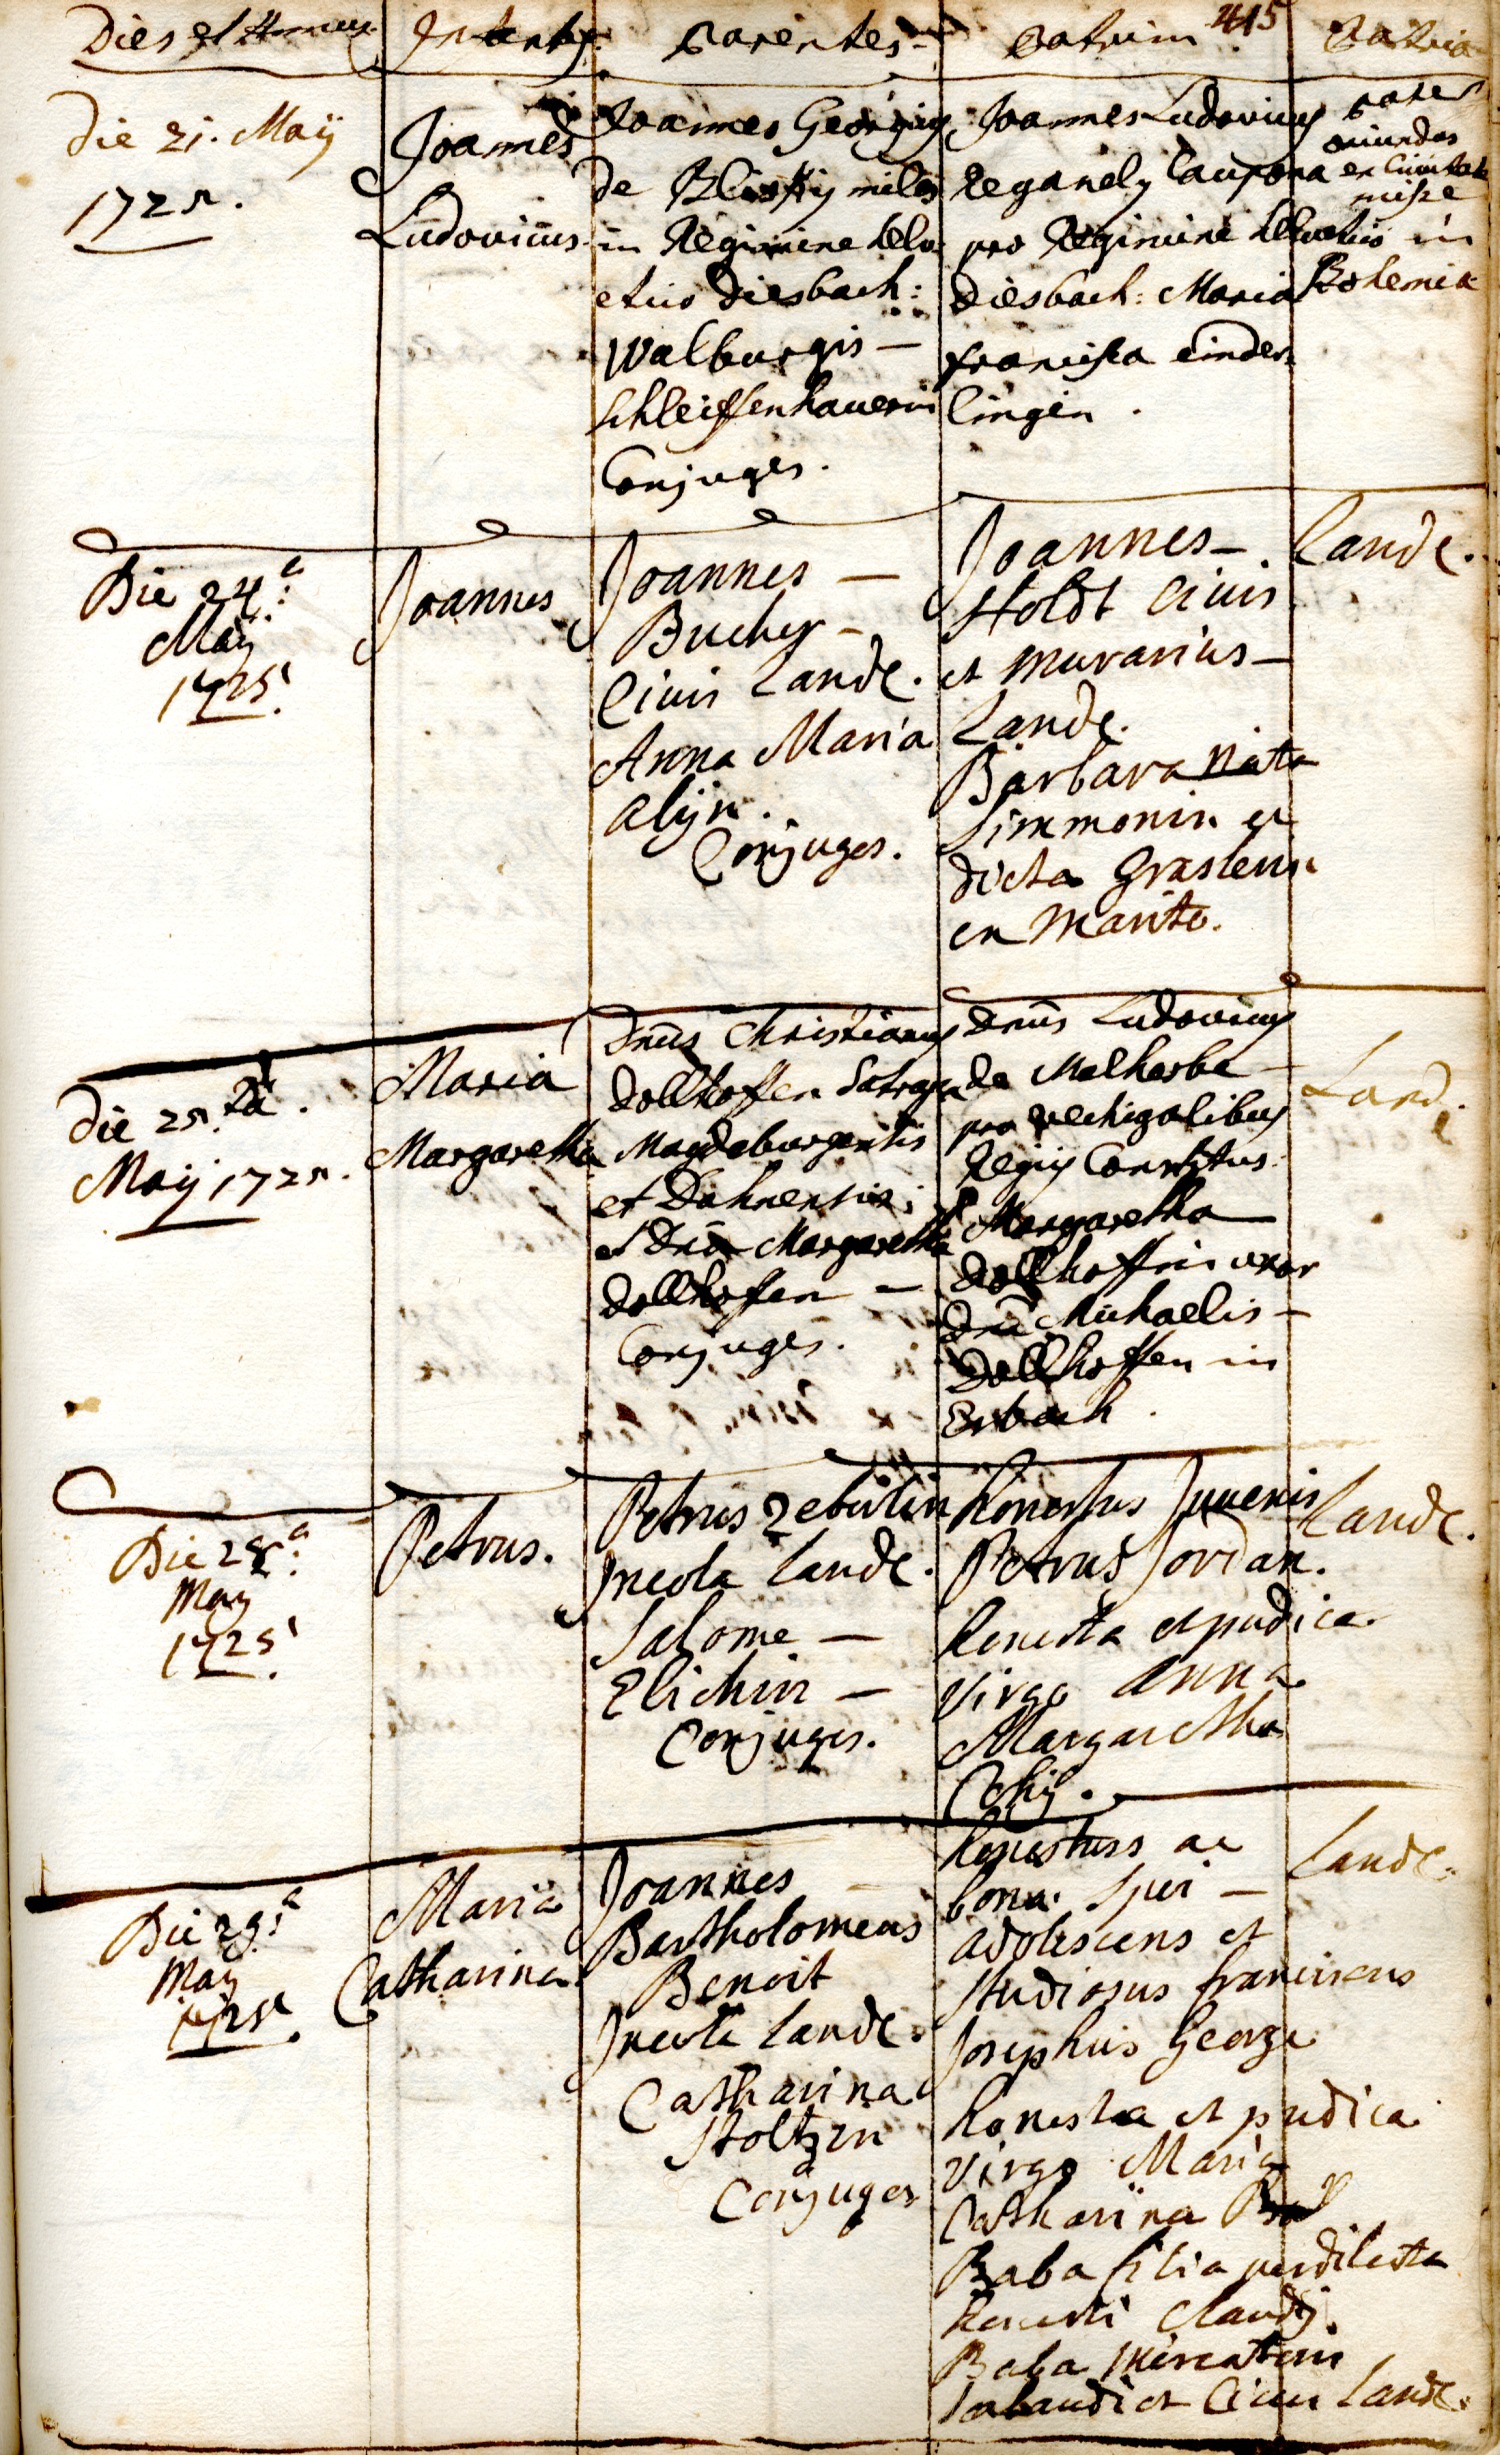 415
Dies et Annus Infantes Parentes Patrini Patria
Die 21. Maÿ
1725.
Joannes
Ludovicus
Joannes Georgius
de miles
in Regimine helv
etico Diesbach:
Walburgis —
Schleiffenhauerin
Conjuges.
Joannes Ludovicus
Caupona
pro Regimine helvetico
Diesbach: Maria
francisca
lingin.
pater
oriundus
ex Civitate
in
Bohemia
Die 24.a
May
1725.
Joannes
Joannes —
Bucher —
Civis Landē.
Anna Maria
Conjuges.
Joannes —
Holdt Civis
et murarius —
Landē.
Barbara nata
Simmonin et
dicta
ex Marito.
Landē.
Die 25.ta.
Maij 1725.
Maria
Margaretha
Dnūs Christianus
Dollhoffen
Magdeburgensis
et Dahnensis;
et Dnā Margaretha
Dollhofen —
Conjuges.
Dnūs Ludovicus
de Malherbe —
pro vectigalibus
Regijs Constitus:
Margaretha
Dollhoffin uxor
Dnī Michaelis —
Dollhoffen in
Erbach.
Landē
Die 28.a
May
1725.
Petrus.
Petrus Zebulin
Incola Landē.
Salome —
Elichin —
Conjuges.
Honestus Juvenis
Petrus Jordan.
honesta et pudica
Virgo Anna
Margaretha
Landē.
Die 29.a
May
1725.
Maria
Catharina
Joannes —
Bartholomeus
Benoit
Incola Landē.
Catharina
Stoltzin
Conjuges
honestus ac
bona Spei —
adolescens et
studiosus franciscus
Josephus George
honesta et pudica
Virgo Maria
Catharina
Baba filia perdilecta
honesti Claudij
Baba Mercatoris
et Civis Landē.
Landē.